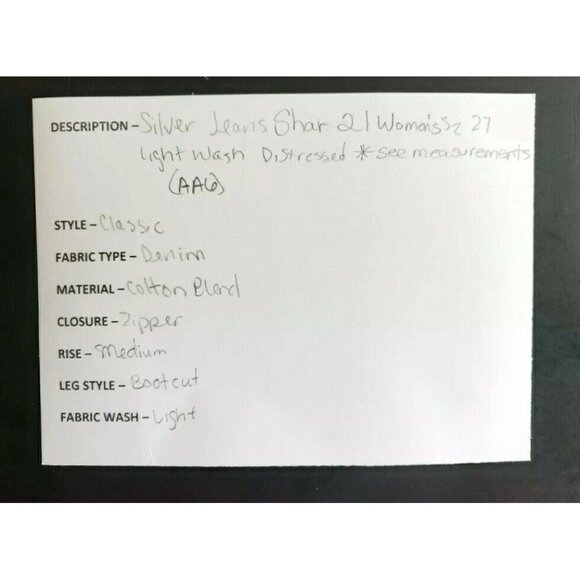 DESCRIPTION – Silver Jeans Shar 21 Women's Sz 27
Light Wash Distressed *see measurements
(AA6)
STYLE – Classic
FABRIC TYPE – Denim
MATERIAL – Cotton Blend
CLOSURE – Zipper
RISE – Medium
LEG STYLE – Bootcut
FABRIC WASH – Light